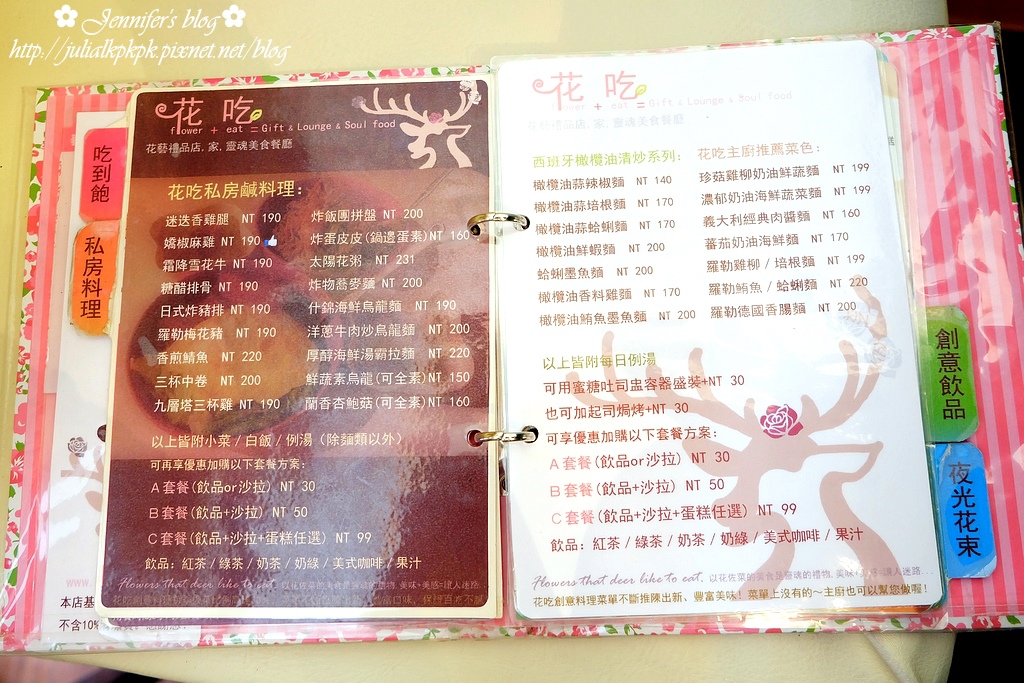 Jennifer's blog
http://julialkpkpk.pixnet.net/blog
吃到飽
私房料理
花吃
flower + eat = Gift & Lounge & Soul food
花藝禮品店.家.靈魂美食餐廳
花吃私房鹹料理：
迷迭香雞腿 NT 190
嬌椒麻雞 NT 190
霜降雪花牛 NT 190
糖醋排骨 NT 190
日式炸豬排 NT 190
羅勒梅花豬 NT 190
香煎鯖魚 NT 220
三杯中卷 NT 200
九層塔三杯雞 NT 190
炸飯團拼盤 NT 200
炸蛋皮皮(鍋邊蛋素) NT 160
太陽花粥 NT 231
炸物蕎麥麵 NT 200
什錦海鮮烏龍麵 NT 190
洋蔥牛肉炒烏龍麵 NT 200
厚醇海鮮湯霸拉麵 NT 220
鮮蔬素烏龍(可全素) NT 150
蘭香杏鮑菇(可全素) NT 160
以上皆附小菜/白飯/例湯（除麵類以外）
可再享優惠加購以下套餐方案：
A套餐(飲品or沙拉) NT 30
B套餐(飲品+沙拉) NT 50
C套餐(飲品+沙拉+蛋糕任選) NT 99
飲品：紅茶/綠茶/奶茶/奶綠/美式咖啡/果汁
Flowers that deer like to eat. 以花佐菜的美食是靈魂的禮物.美味+美感=讓人迷路...
www.
本店基
不含10%
花吃
flower + eat = Gift & Lounge & Soul food
花藝禮品店.家.靈魂美食餐廳
西班牙橄欖油清炒系列：
橄欖油蒜辣椒麵 NT 140
橄欖油蒜培根麵 NT 170
橄欖油蒜蛤蜊麵 NT 170
橄欖油鮮蝦麵 NT 200
蛤蜊墨魚麵 NT 200
橄欖油香料雞麵 NT 170
橄欖油鮪魚墨魚麵 NT 200
花吃主廚推薦菜色：
珍菇雞柳奶油鮮蔬麵 NT 199
濃郁奶油海鮮蔬菜麵 NT 199
義大利經典肉醬麵 NT 160
蕃茄奶油海鮮麵 NT 170
羅勒雞柳/培根麵 NT 199
羅勒鮪魚/蛤蜊麵 NT 220
羅勒德國香腸麵 NT 200
以上皆附每日例湯
可用蜜糖吐司盅容器盛裝+NT 30
也可加起司焗烤+NT 30
可享優惠加購以下套餐方案：
A套餐(飲品or沙拉) NT 30
B套餐(飲品+沙拉) NT 50
C套餐(飲品+沙拉+蛋糕任選) NT 99
飲品：紅茶/綠茶/奶茶/奶綠/美式咖啡/果汁
Flowers that deer like to eat. 以花佐菜的美食是靈魂的禮物.美味+美感=讓人迷路...
花吃創意料理菜單不斷推陳出新、豐富美味！菜單上沒有的～主廚也可以幫您做喔！
創意飲品
夜光花束